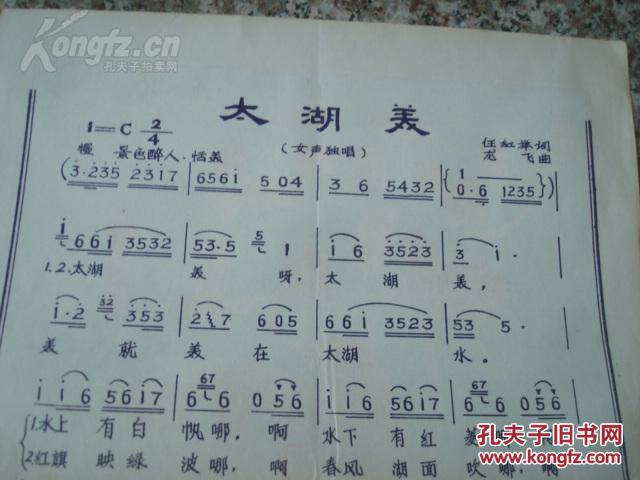 Kongfz.cn
孔夫子拍卖网
太湖美
1=C 2/4
(女声独唱)
任红举词
龙飞曲
慢 景色醉人、恬美
(3·235 2317 | 6561 504 | 3 6 5432 | {1 0·6 1235})
i 661 3532 | 53·5 5 1 | i6 3523 | 3 i·
1.2.太湖 美 呀,太 湖 美,
i·2 32 353 | 2 7 605 | 661 3523 | 53 5·
美 就 美 在 太湖 水。
i i6 5617 | 6 67 6 056 | i i6 5617 | 6 67 6 056
1.水上 有 白 帆哪,啊 水下 有 红
2.红旗 映绿 波哪,啊 春风 湖面 吹哪,啊
孔夫子旧书网
www.kongfz.com